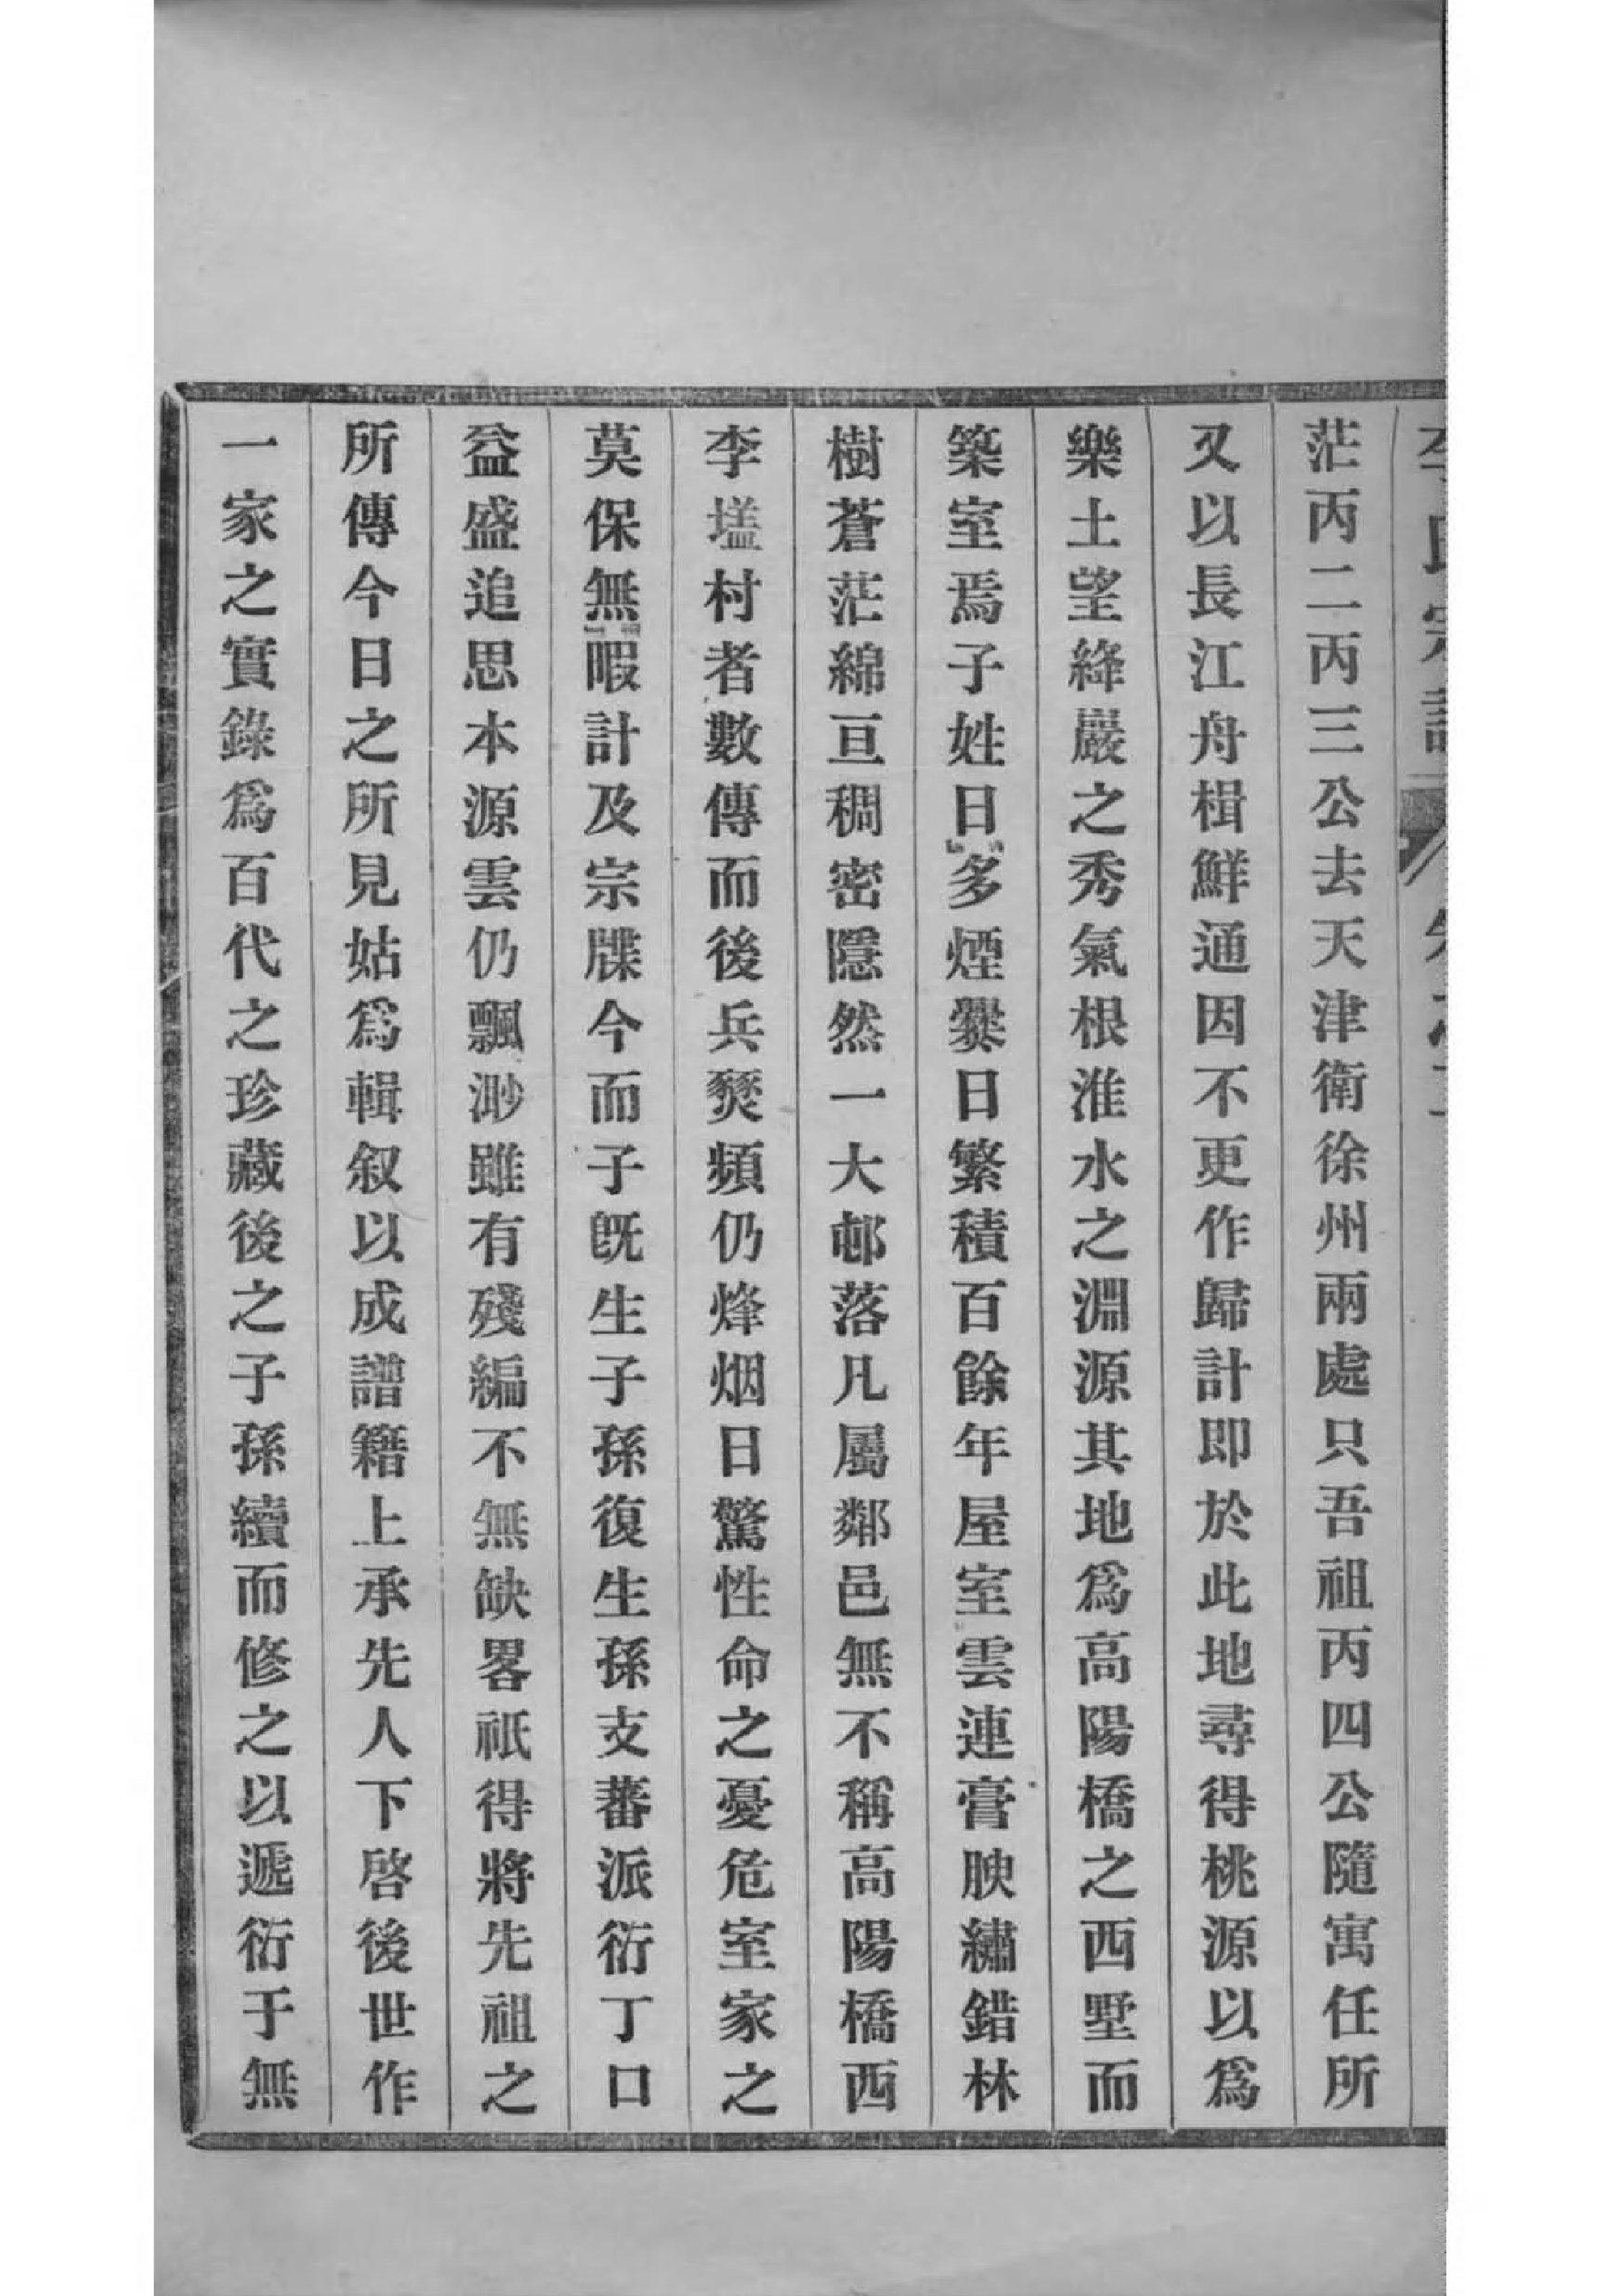 李氏宗譜
茫丙二丙三公去天津衛徐州兩處只吾祖丙四公隨寓任所
又以長江舟楫鮮通因不更作歸計即於此地尋得桃源以爲
樂土望絳巖之秀氣根淮水之淵源其地爲高陽橋之西墅而
築室焉子姓日多煙爨日繁積百餘年屋室雲連膏腴繡錯林
樹蒼茫綿亘稠密隱然一大邨落凡屬鄰邑無不稱高陽橋西
李壗村者數傳而後兵燹頻仍烽烟日驚性命之憂危室家之
莫保無暇計及宗牒今而子旣生子孫復生孫支蕃派衍丁口
益盛追思本源雲仍飄渺雖有殘編不無缺畧祇得將先祖之
所傳今日之所見姑爲輯叙以成譜籍上承先人下啓後世作
一家之實錄爲百代之珍藏後之子孫續而修之以遞衍于無